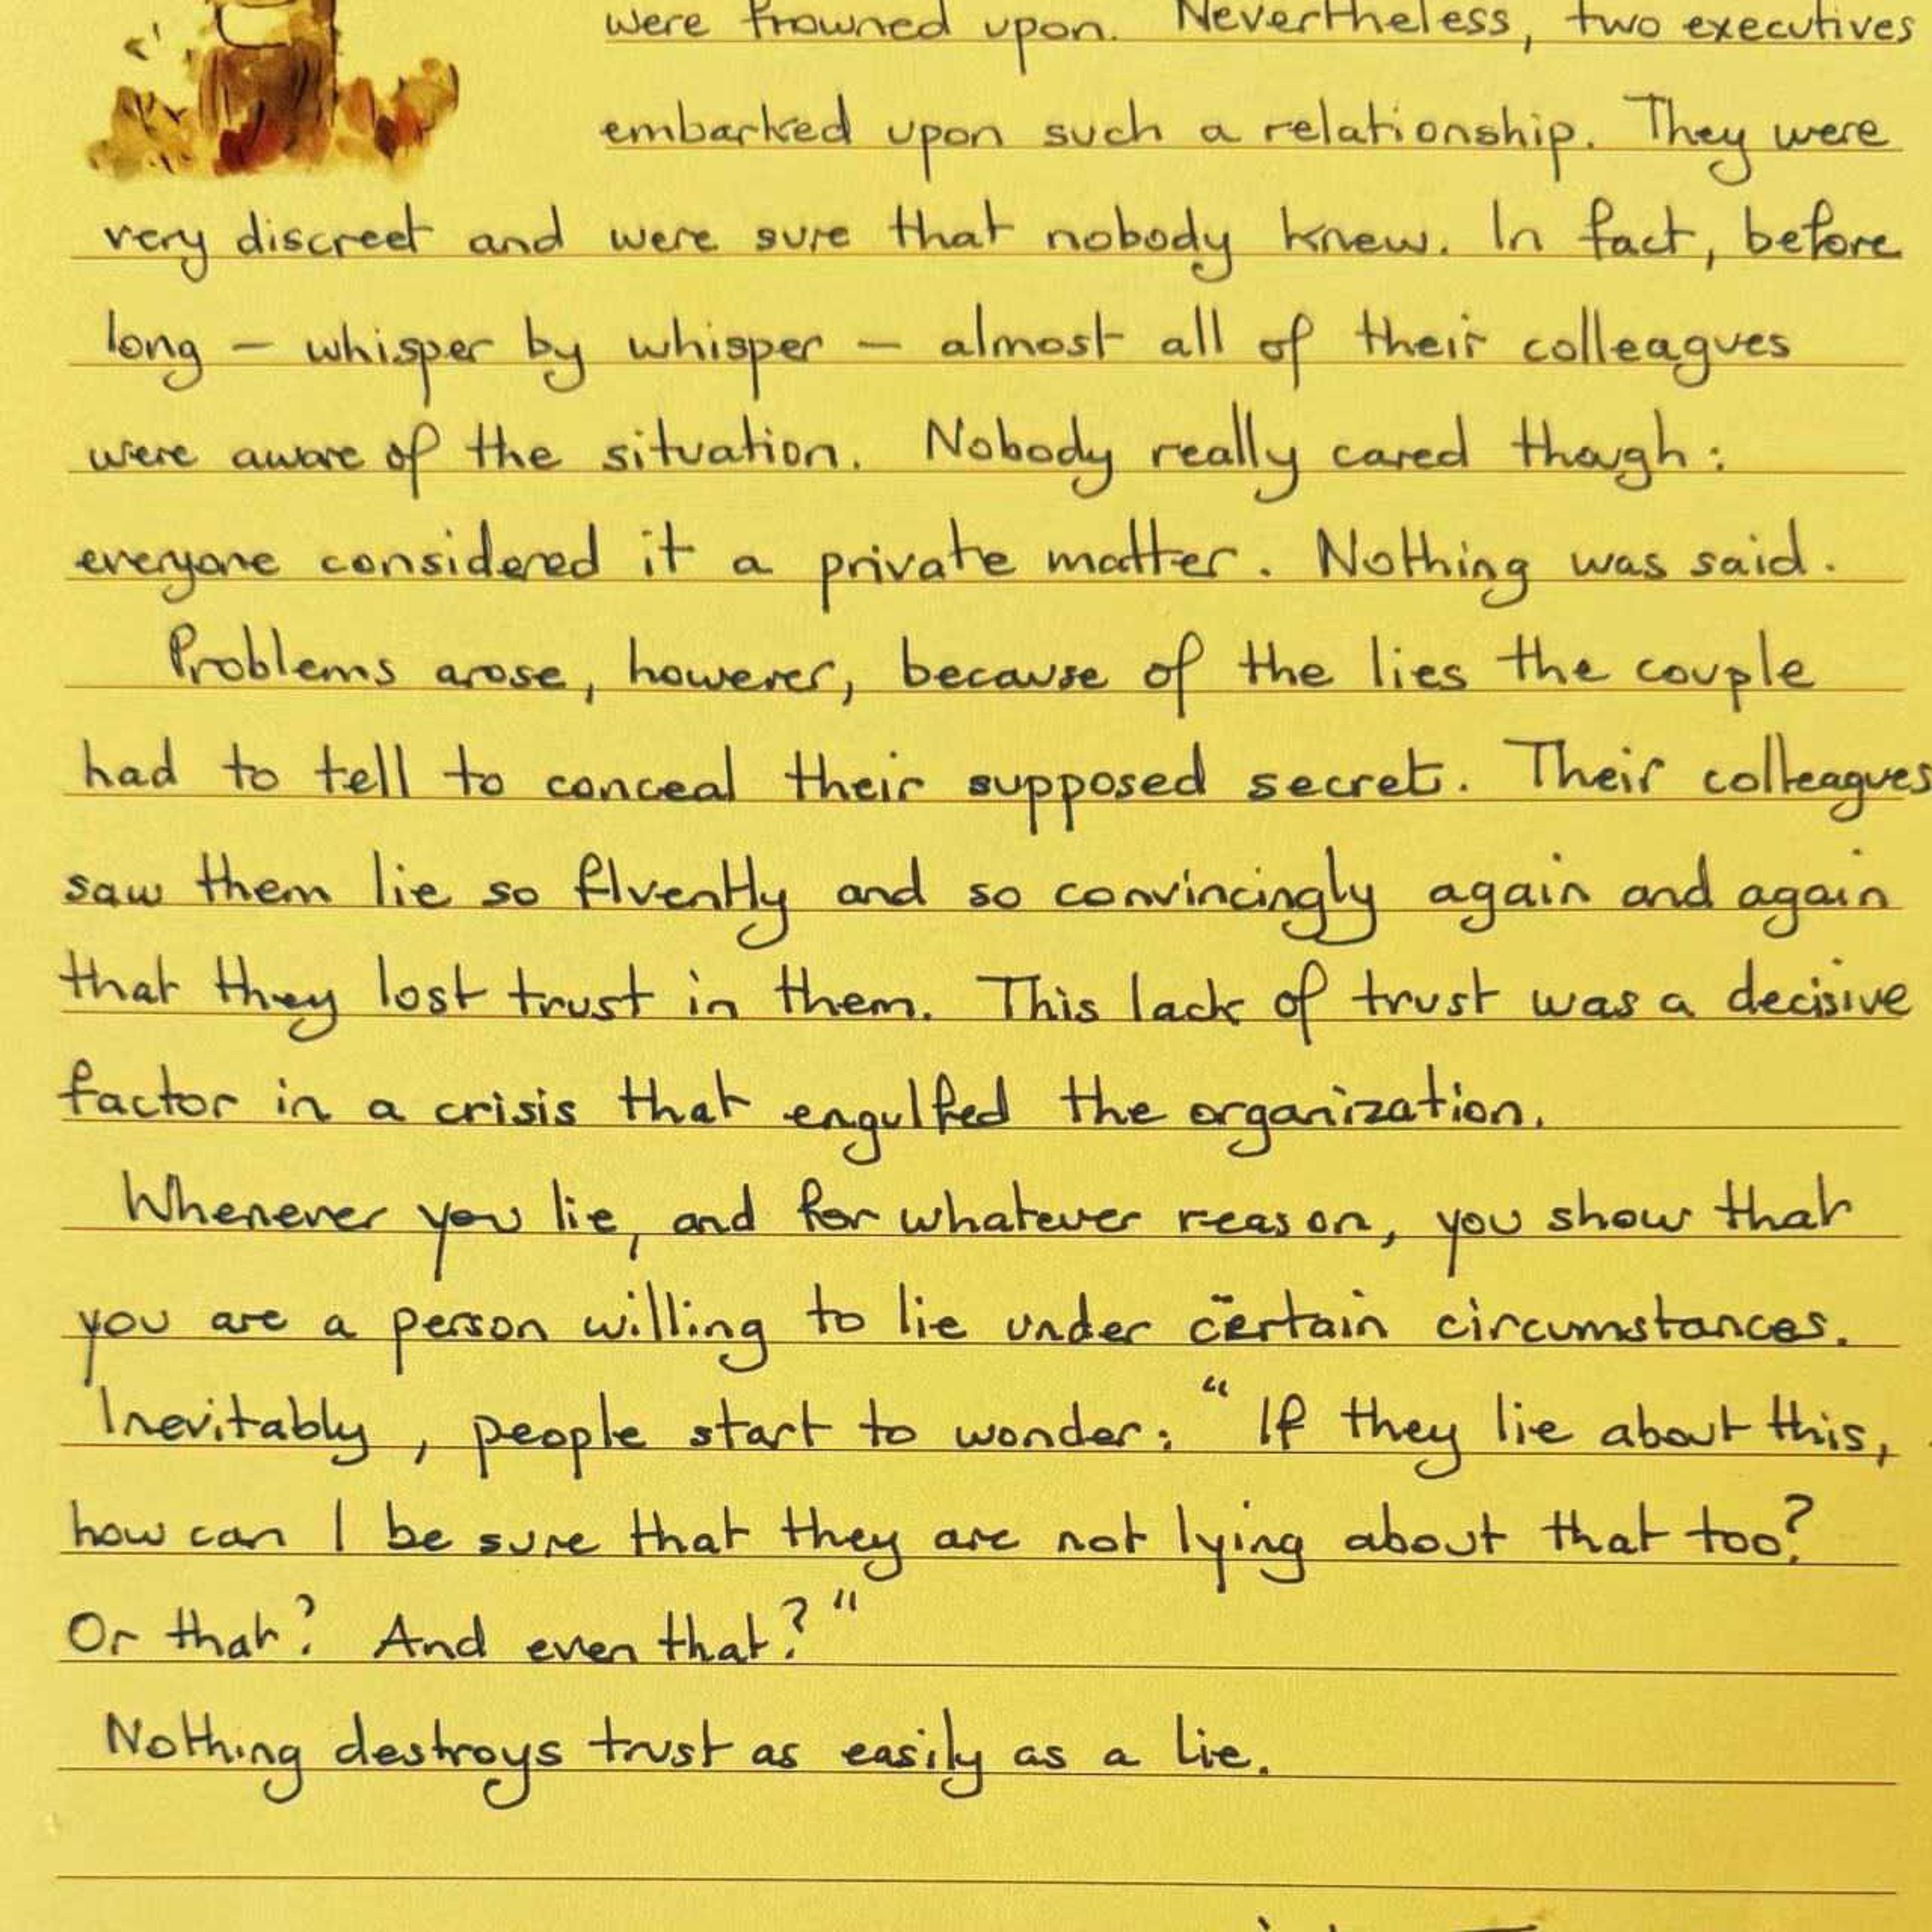 were frowned upon. Nevertheless, two executives
embarked upon such a relationship. They were
very discreet and were sure that nobody knew. In fact, before
long – whisper by whisper – almost all of their colleagues
were aware of the situation. Nobody really cared though:
everyone considered it a private matter. Nothing was said.
Problems arose, however, because of the lies the couple
had to tell to conceal their supposed secret. Their colleagues
saw them lie so fluently and so convincingly again and again
that they lost trust in them. This lack of trust was a decisive
factor in a crisis that engulfed the organization.
Whenever you lie, and for whatever reason, you show that
you are a person willing to lie under certain circumstances.
Inevitably, people start to wonder: "If they lie about this,
how can I be sure that they are not lying about that too?
Or that? And even that?"
Nothing destroys trust as easily as a lie.